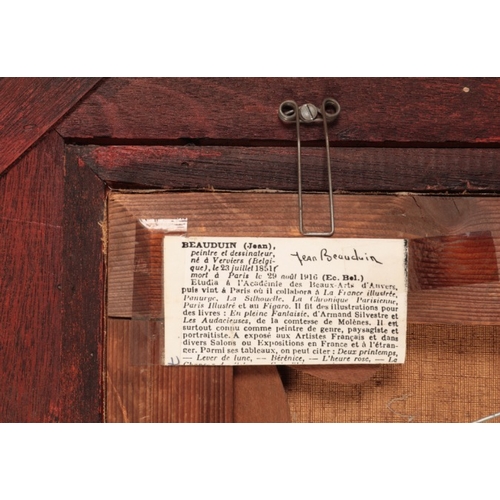 BEAUDUIN (Jean),
peintre et dessinateur,
né à Verviers (Belgi-
que), le 23 juillet 1851,
mort à Paris le 29 août 1916 (Ec. Bel.)
Jean Beauduin
Etudia à l'Académie des Beaux-Arts d'Anvers,
puis vint à Paris où il collabora à La France illustrée,
Panurge, La Silhouette, La Chronique Parisienne,
Paris Illustré et au Figaro. Il fit des illustrations pour
des livres : En pleine Fantaisie, d'Armand Silvestre et
Les Audacieuses, de la comtesse de Molènes. Il est
surtout connu comme peintre de genre, paysagiste et
portraitiste. A exposé aux Artistes Français et dans
divers Salons ou Expositions en France et à l'étran-
cer. Parmi ses tableaux, on peut citer : Deux printemps,
— Lever de lune, — Bérénice, — L'heure rose, — La